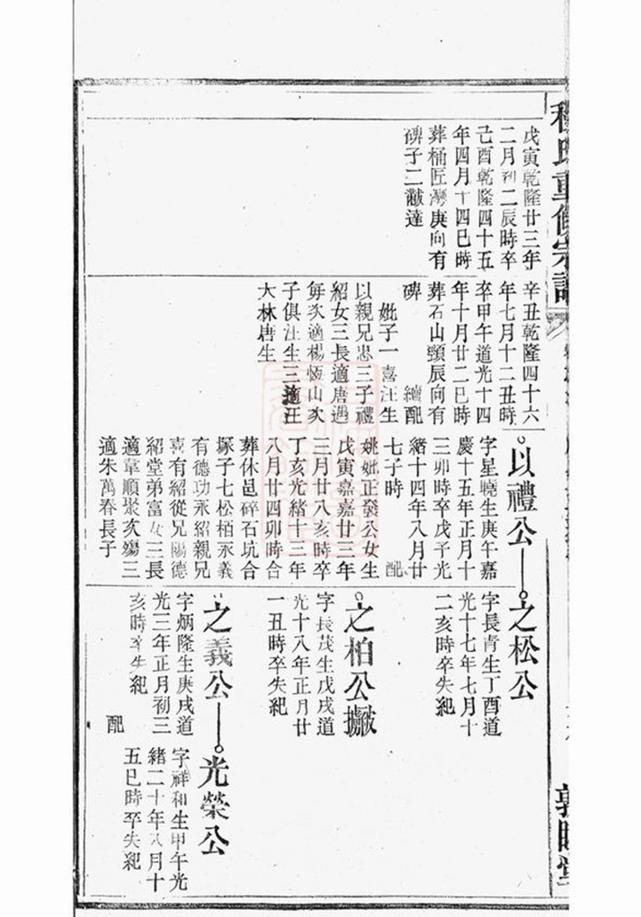 戊寅乾隆廿三年
二月初二辰時卒
己酉乾隆四十五
年四月十四巳時
葬桶匠灣庚向有
碑子二黻達
辛丑乾隆四十六
年七月十二丑時
卒甲午道光十四
年十月廿二巳時
葬石山頸辰向有
碑 繼配
妣子一喜汪生
以親兄忠三子禮
紹女三長適唐遇
毎次適楊恆山次
子俱汪生三適汪
大林唐生
以禮公
字星曉生庚午嘉
慶十五年正月十
三卯時卒戊子光
緒十四年八月廿
七子時 配
姚妣正發公女生
戊寅嘉嘉廿三年
三月廿八亥時卒
丁亥光緒十三年
八月廿四卯時合
葬休邑碎石坑合
塚子七松栢永義
有德功永紹親兄
喜有紹從兄陽德
紹堂弟富女三長
適章順聚次殤三
適朱萬春長子
之松公
字長青生丁酉道
光十七年七月十
二亥時卒失紀
之柏公
字長茂生戊戌道
光十八年正月廿
一丑時卒失紀
之義公
字炳隆生庚戌道
光三年正月初三
亥時卒失紀
配
光榮公
字祥和生甲午光
緒二十年八月十
五巳時卒失紀